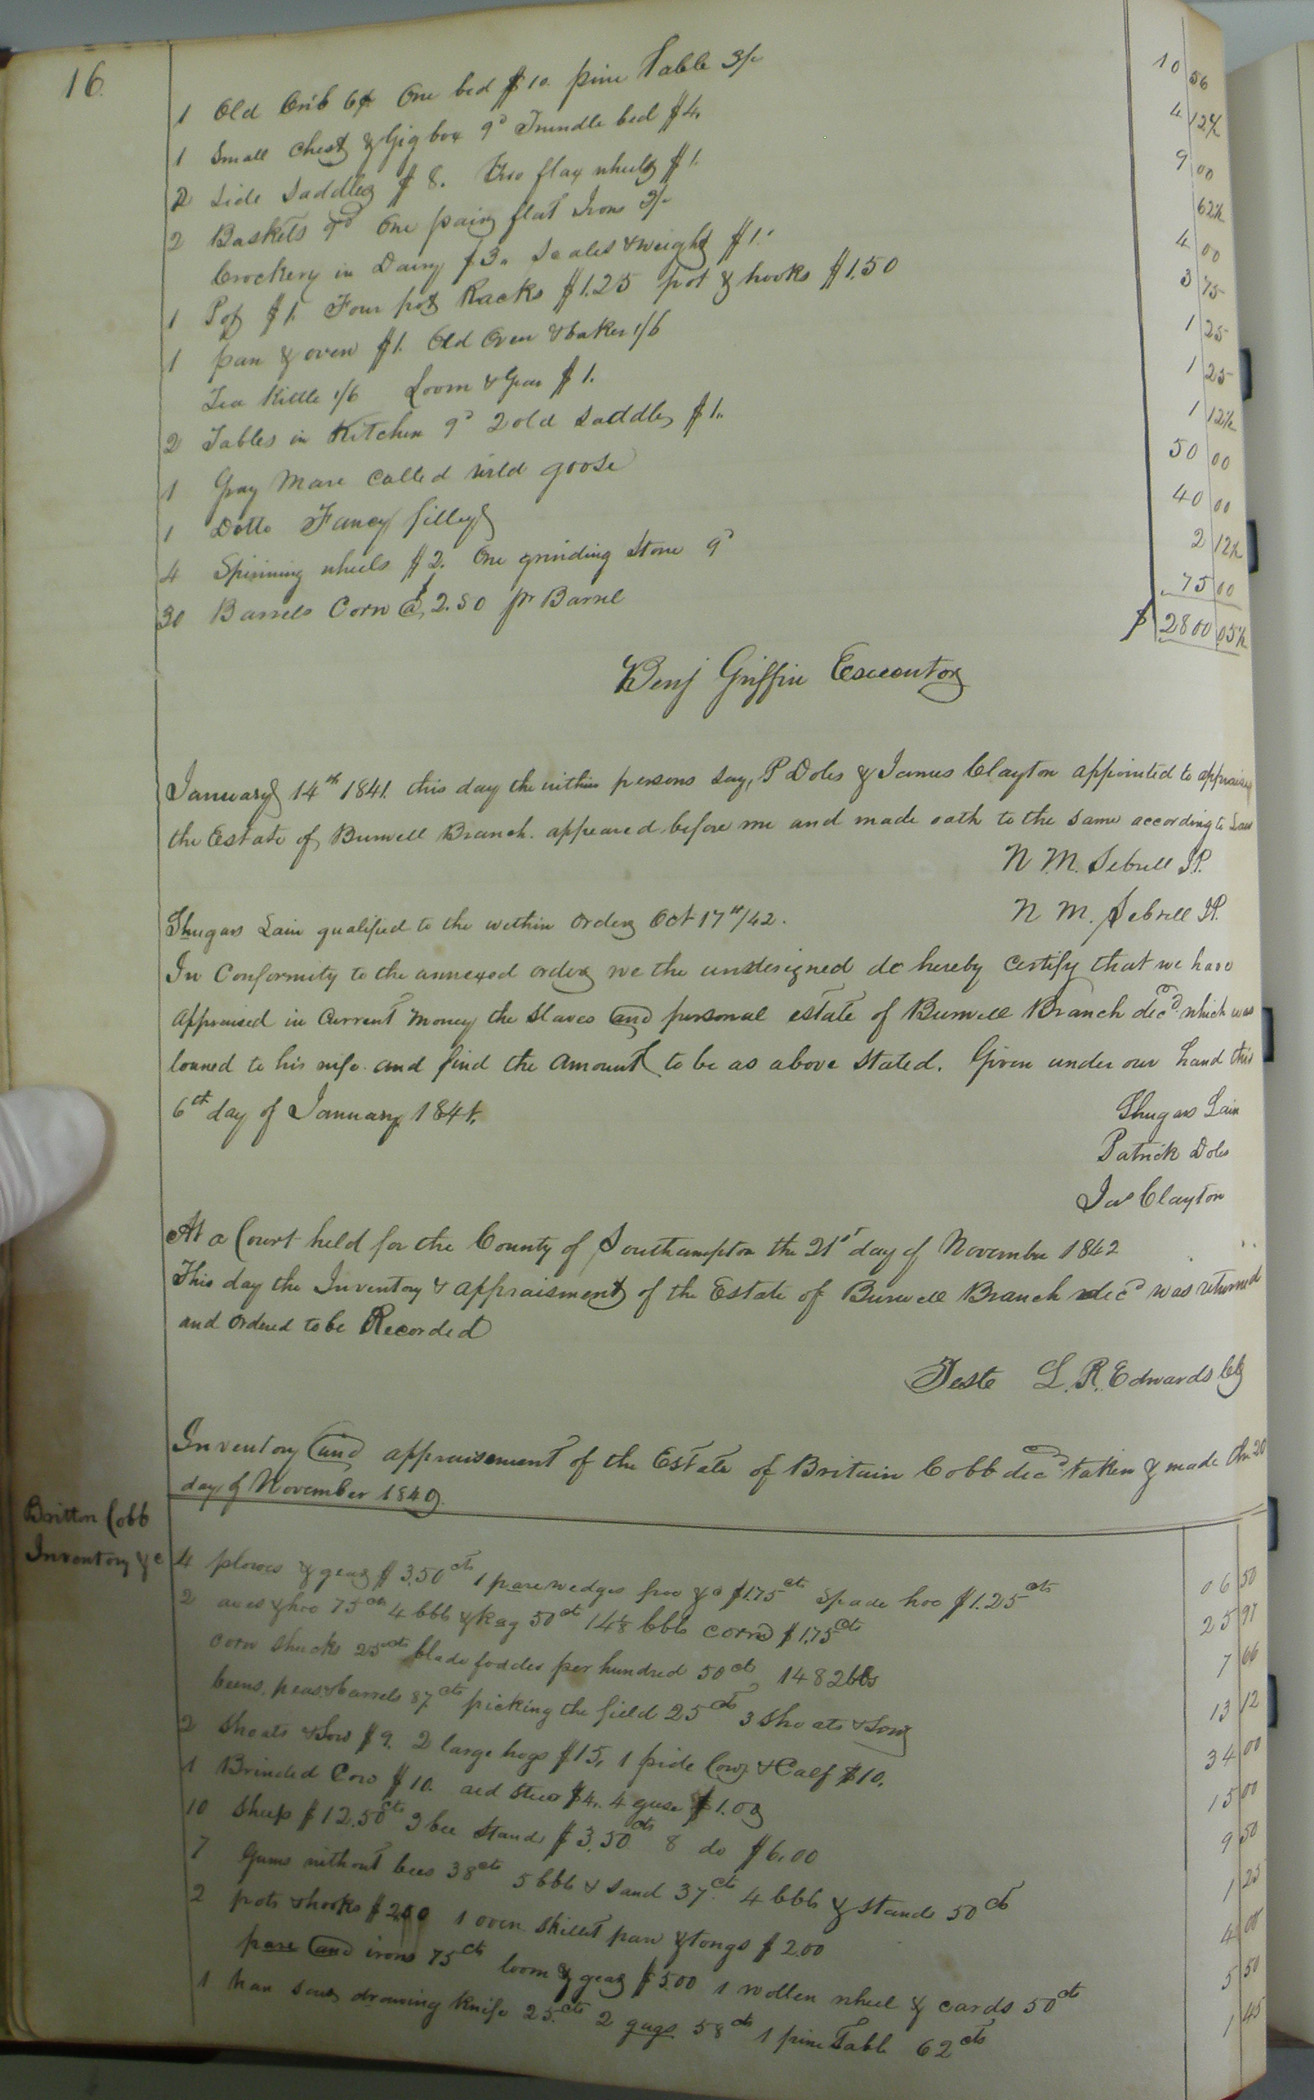 16.
1 Old Crib 6¢ One bed $10. pine Table 3/- 10 56
1 Small Chest & Gig box 9d Trundle bed $4. 4 12½
2 Side Saddles $8. Two flax wheels $1. 9 00
2 Baskets 9d One pair flat Irons 3/- 62½
Crockery in Dairy $3. Scales & weights $1. 4 00
1 Pot $1. Four pot Racks $1.25 pot & hooks $1.50 3 75
1 pan & oven $1. Old Oven & baker 1/6 1 25
Tea Kittle 1/6 Loom & Gear $1. 1 25
2 Tables in Kitchen 9d 2 old Saddles $1. 1 12½
1 Gray Mare called wild goose 50 00
1 Ditto Fancy filley 40 00
4 Spinning wheels $2. One grinding Stone 9d 2 12½
30 Barrels Corn @ $2.50 pr Barrel 75 00
$ 2800 05½
Benj Griffin Executor
January 14th 1841. this day the within persons Say, P Doles & James Clayton appointed to appraise
the Estate of Burwell Branch. appeared before me and made oath to the same according to Law
N. M. Sebrell JP.
Shugars Lain qualified to the within order Oct 17th/42. N. M. Sebrell JP.
In Conformity to the annexed order we the undesigned do hereby certify that we have
appraised in Current Money the Slaves and personal estate of Burwell Branch decd which was
loaned to his wife and find the amount to be as above stated. Given under our hand this
6th day of January 1841.
Shugars Lain
Patrick Doles
Jas Clayton
At a Court held for the County of Southampton the 21st day of November 1842
This day the Inventory & appraisment of the Estate of Burwell Branch decd was returned
and ordered to be Recorded
Teste L. R. Edwards Clk
Inventory and appraisement of the Estate of Britain Cobb decd taken & made the 20
day of November 1840.
Britton Cobb
Inventory &c
4 plows & gear $3.50cts 1 pare wedges froo &c $1.75cts Spade hoe $1.25cts 06 50
2 axes & hoe 75cts 4 bbls & keg 50cts 14⅘ bbls corn $1.75cts 25 97
corn shucks 25cts blade fodder per hundred 50cts 1482lbs 7 66
beens, peas & barrels 87cts picking the field 25cts 3 Shoats & Sow 13 12
2 Shoats & Sow $9. 2 large hogs $15, 1 pide Cow & Calf $10. 34 00
1 Brinded Cow $10. red Steer $4. 4 guse $1.00 15 00
10 Sheep $12.50cts 9 bee Stands $3.50cts 8 do $6.00 9 50
7 Gums without bees 38cts 5 bbls & sand 37cts 4 bbls & stands 50cts 1 25
2 pots & hooks $2.00 1 oven Skillet pan & tongs $2.00 4 00
pare and irons 75cts loom & gear $5.00 1 wollen wheel & cards 50cts 5 50
1 han saw drawing knife 25cts 2 gugs 58cts 1 pine Table 62cts 1 45